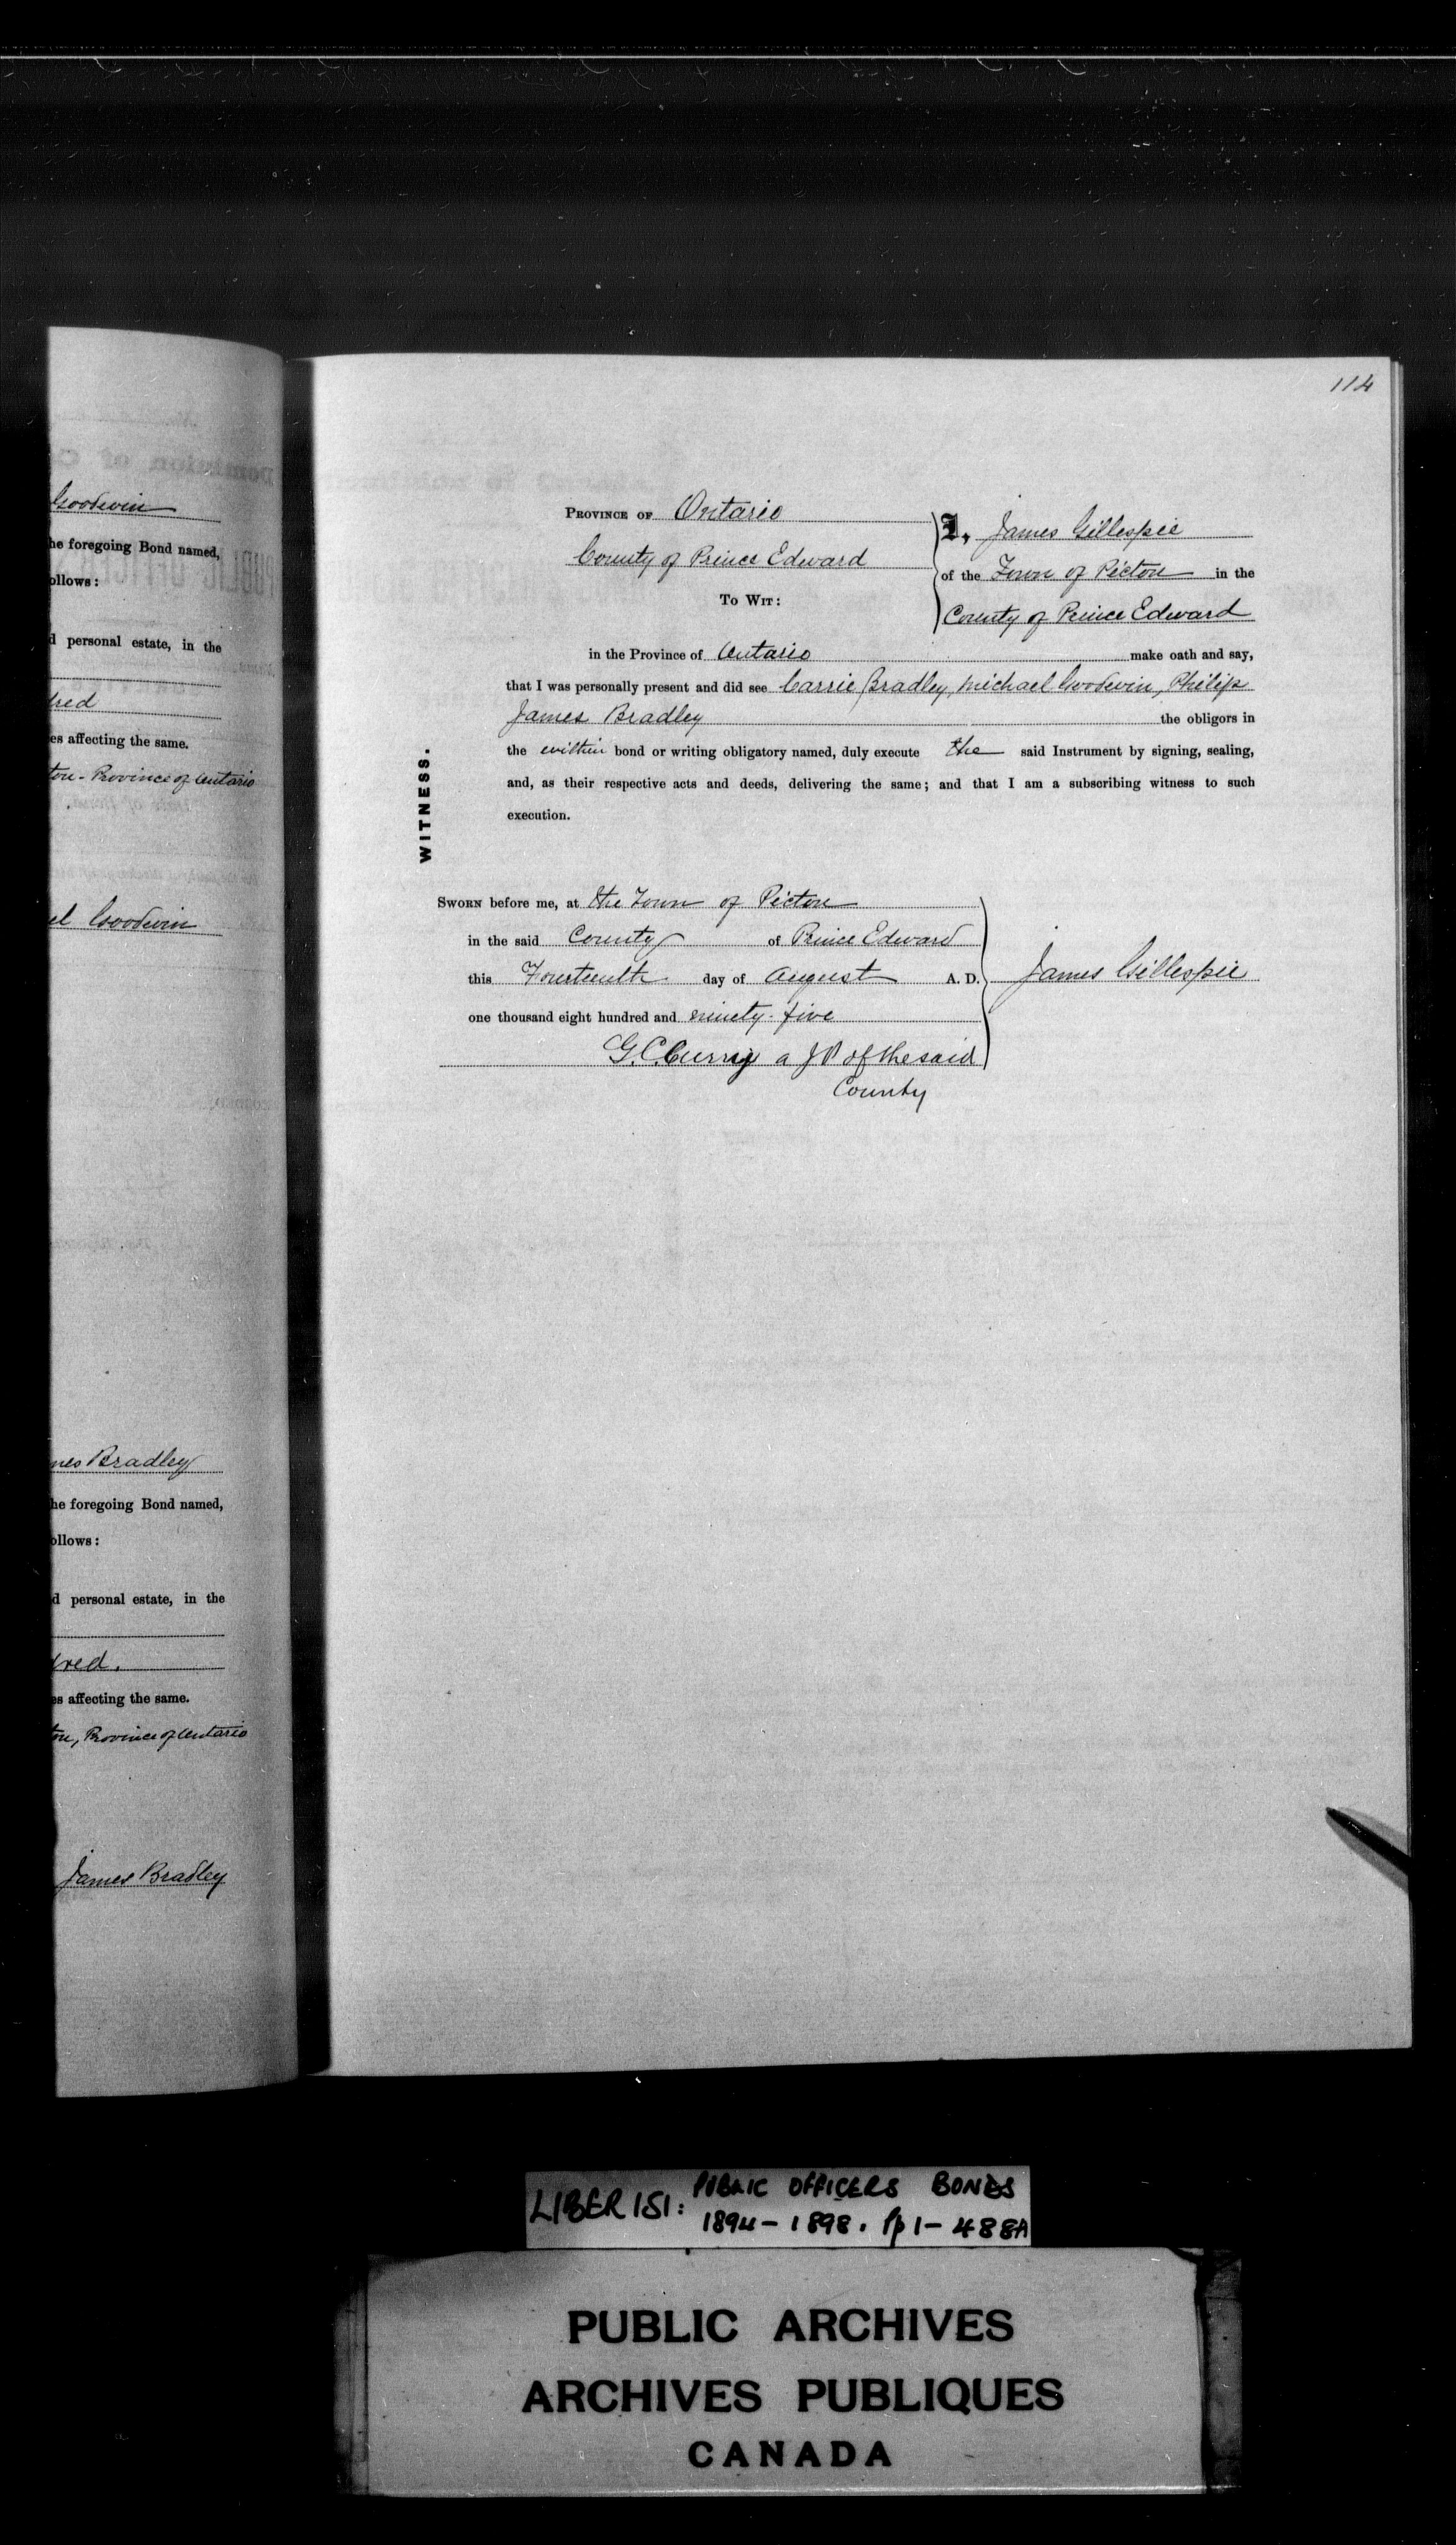 114
Goodwin
he foregoing Bond named,
ollows:
d personal estate, in the
dred
es affecting the same.
ton - Province of Ontario
el Goodwin
mes Bradley
he foregoing Bond named,
ollows:
d personal estate, in the
dred.
es affecting the same.
ton, Province of Ontario
James Bradley
PROVINCE OF Ontario
County of Prince Edward
TO WIT:
I, James Gillespie
of the Town of Picton in the
County of Prince Edward
in the Province of Ontario make oath and say,
that I was personally present and did see Carrie Bradley, Michael Goodwin, Philip
James Bradley the obligors in
the within bond or writing obligatory named, duly execute the said Instrument by signing, sealing,
and, as their respective acts and deeds, delivering the same; and that I am a subscribing witness to such
execution.
WITNESS.
SWORN before me, at the Town of Picton
in the said County of Prince Edward
this Fourteenth day of August A. D.
one thousand eight hundred and ninety-five
G.C. Curry a JP of the said
County
James Gillespie
LIBER 151: PUBLIC OFFICERS BONDS
1894-1898. Pp 1-488A
PUBLIC ARCHIVES
ARCHIVES PUBLIQUES
CANADA